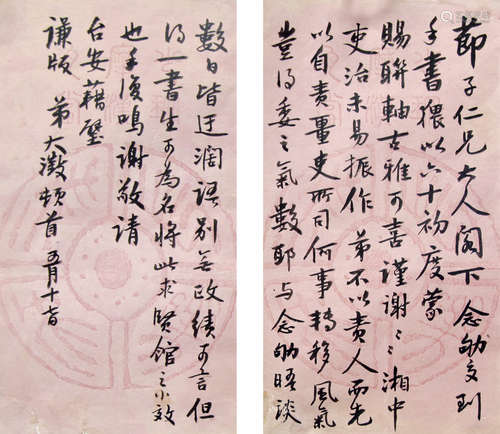 節子仁兄大人閣下念劬交到
手書猥以六十初度蒙
賜聯軸古雅可喜謹謝〻湘中
吏治未易振作弟不以責人而先
以自責疆吏所司何事轉移風氣
豈得委之氣數耶与念劬晤談
數日皆迂濶語別無政績可言但
得一書生可為名將此求賢館之小效
也手復鳴謝敬請
台安藉璧
謙版 弟大澂頓首 五月十